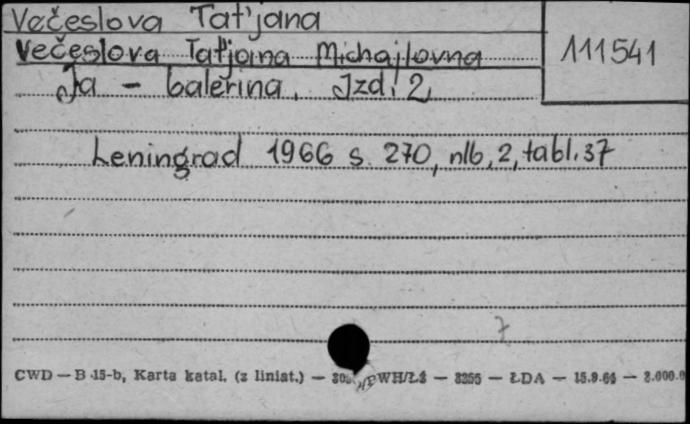 Večeslova Tat'jana
111541
Večeslova Tat'jana Michajlovna
Ja - balerina. Izd. 2,
Leningrad 1966 s. 270, nlb. 2, tabl. 37
7
CWD — B 15-b, Karta katal. (z liniat.) — PWH/Łż — 3255 — ŁDA — 15.9.64 —